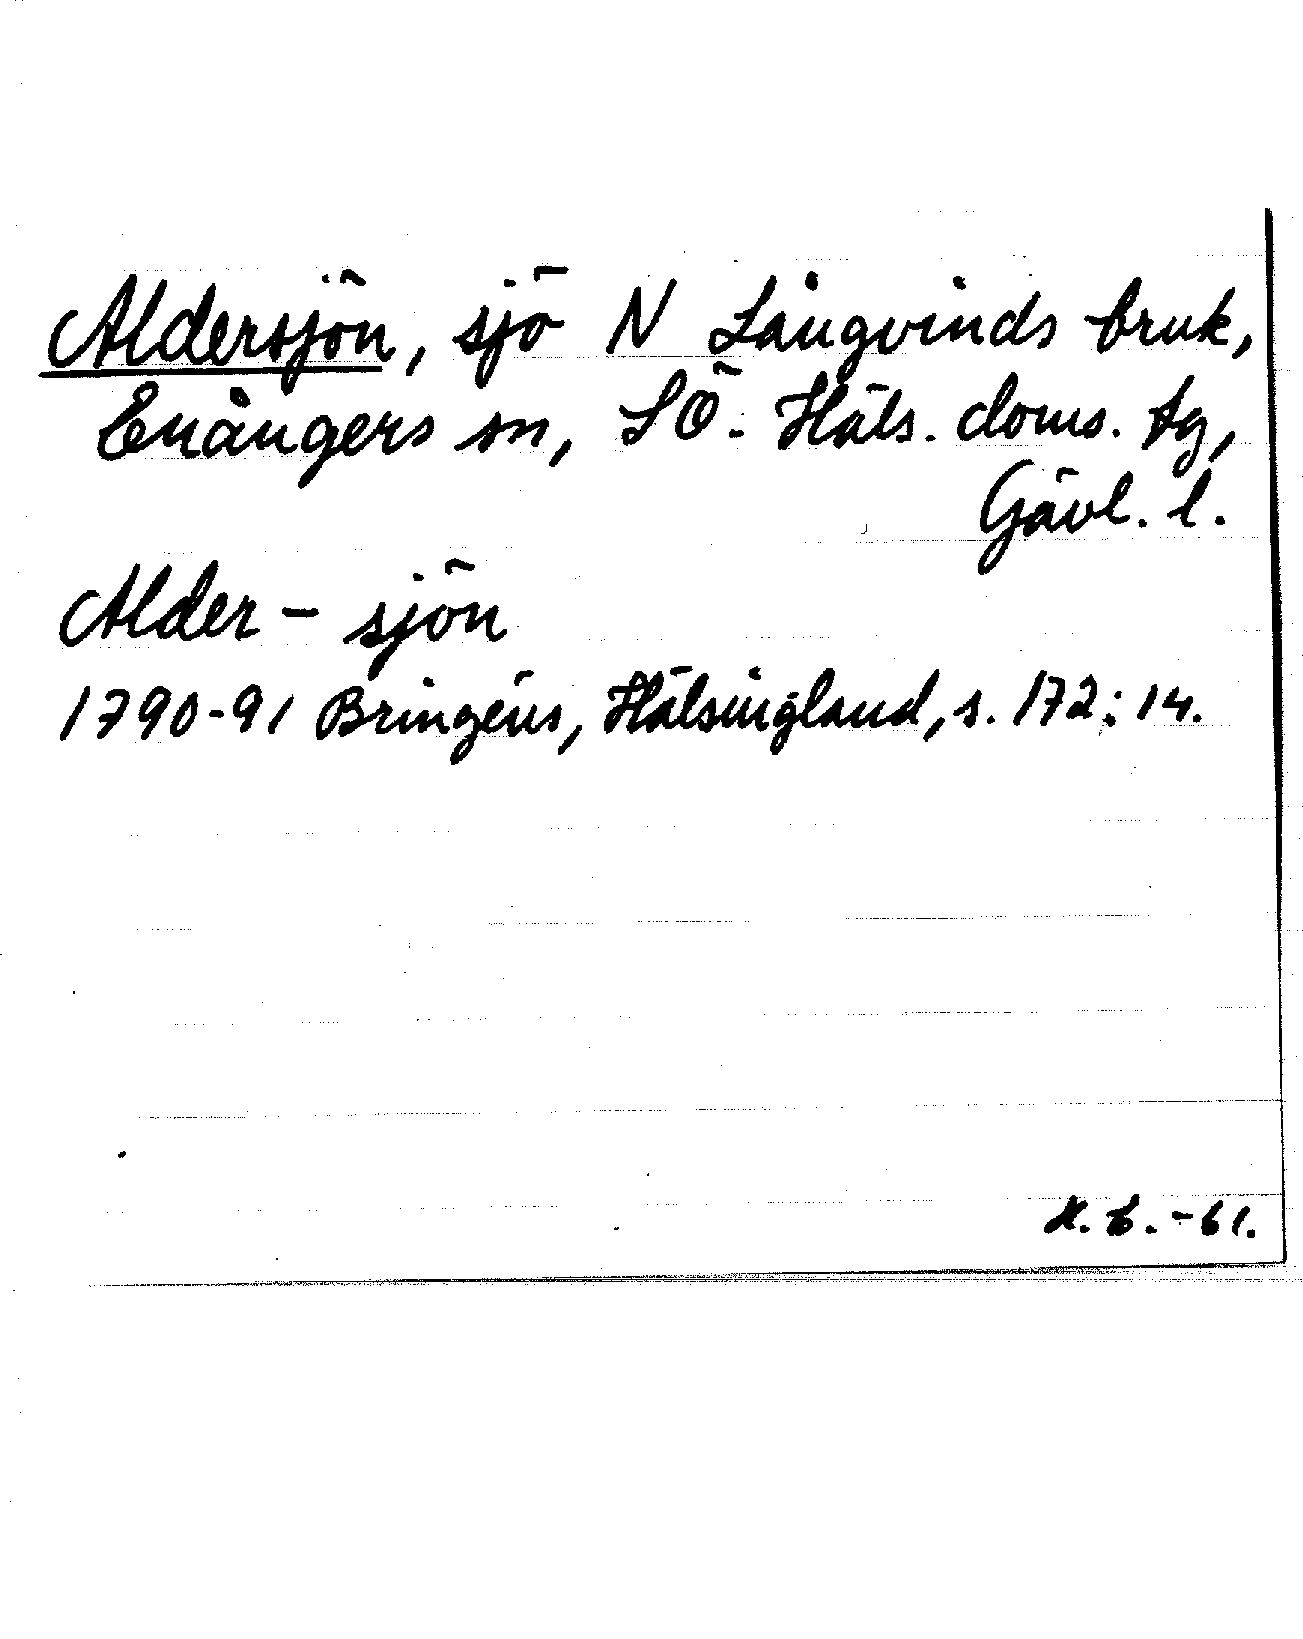 Aldersjön, sjö N Långvinds bruk,
Enångers sn, SÖ. Häls. doms. tg,
Gävl. l.
Alder-sjön
1790-91 Bringéus, Hälsingland, s. 172:14.
K. B. -61.